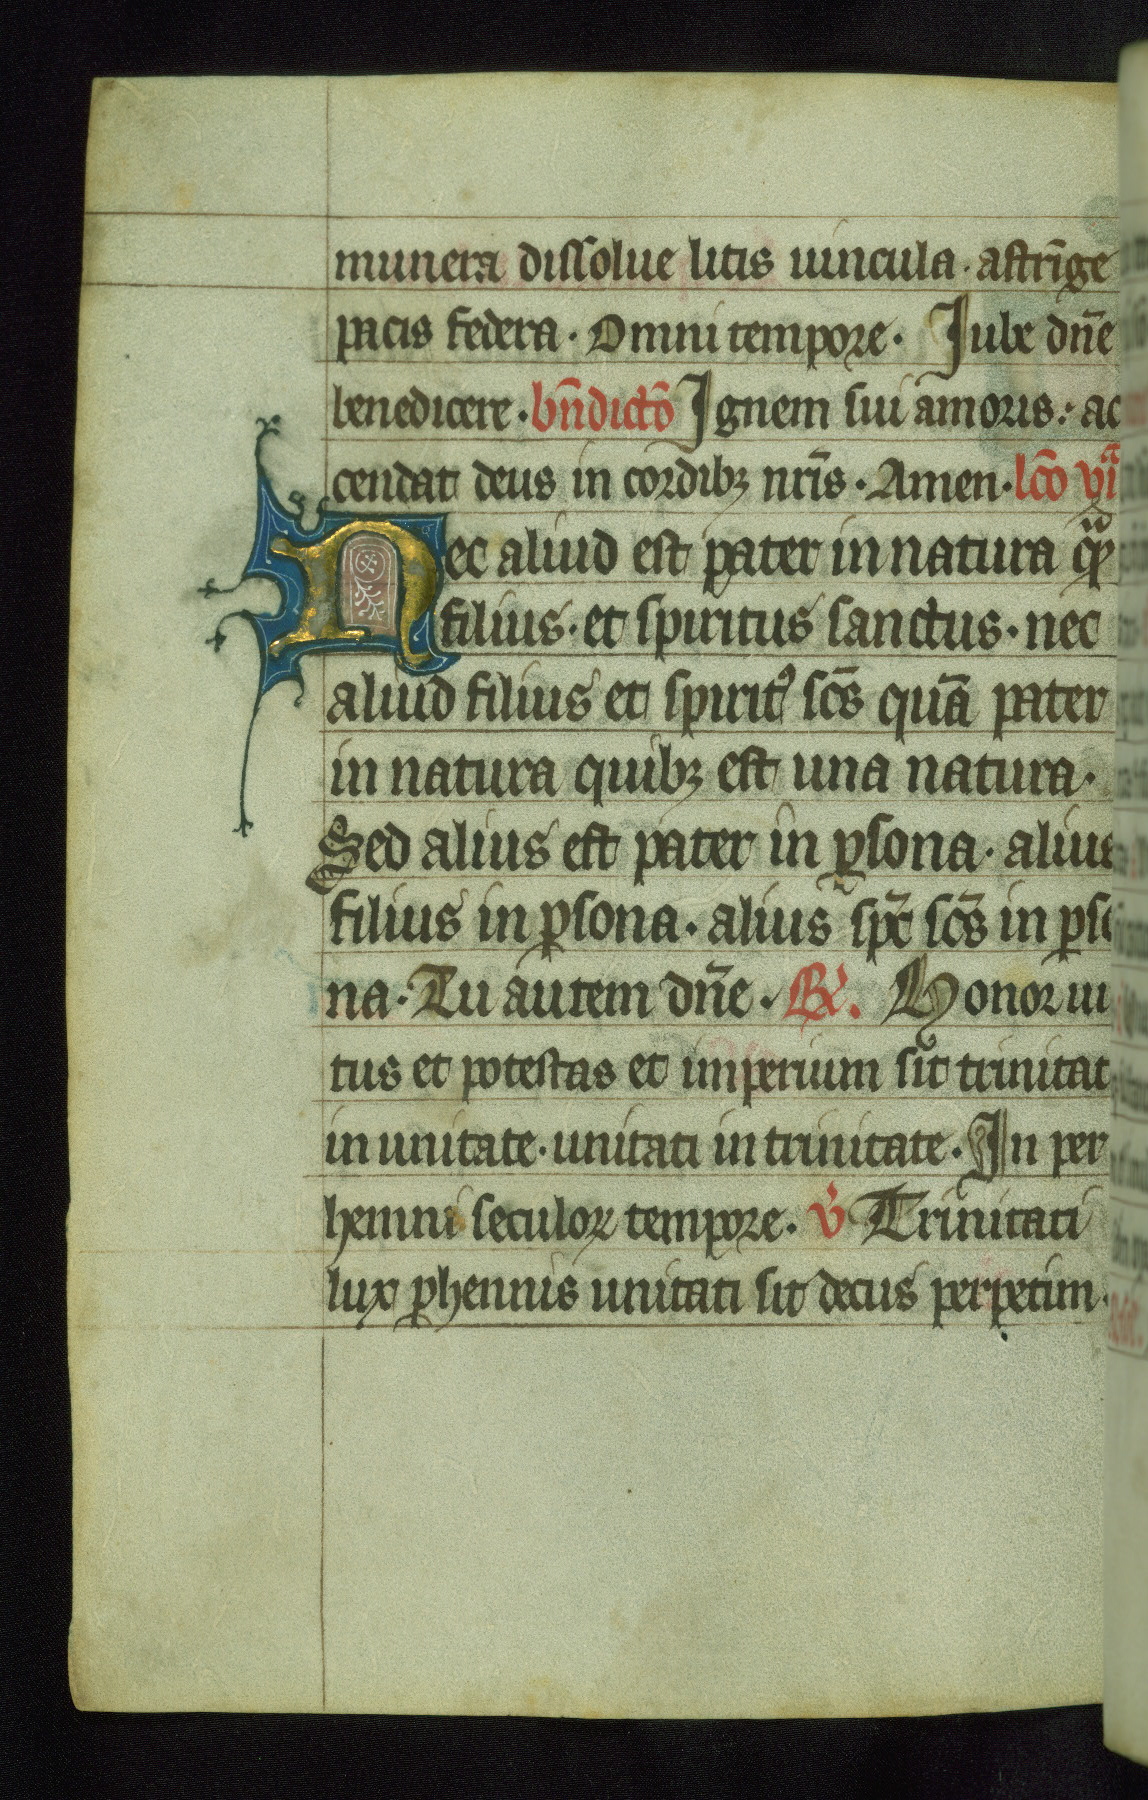 munera dissolue litis uincula · astrīge
pacis federa · Omni tempore · Iube dn̄e
benedicere · bn̄dictō Ignem sui amoris : ac
cendat deus in cordibꝫ nr̄is · Amen · lc̄o vı̄
Nec aliud est pater in natura
filius · et spiritus sanctus · nec
aliud filius et spiritꝰ sc̄s quā pater
in natura quibꝫ est una natura ·
Sed alius est pater in ꝑsona · alius
filius in ꝑsona · alius sp̄c sc̄s in ꝑso
na · Tu autem dn̄e · ℟. Honor uir
tus et potestas et imperium sit trinitati
in unitate · unitati in trinitate · In per
hemni seculoꝝ tempore · ℣ Trinitati
lux ꝑhennis unitati sit decus perpetim ·